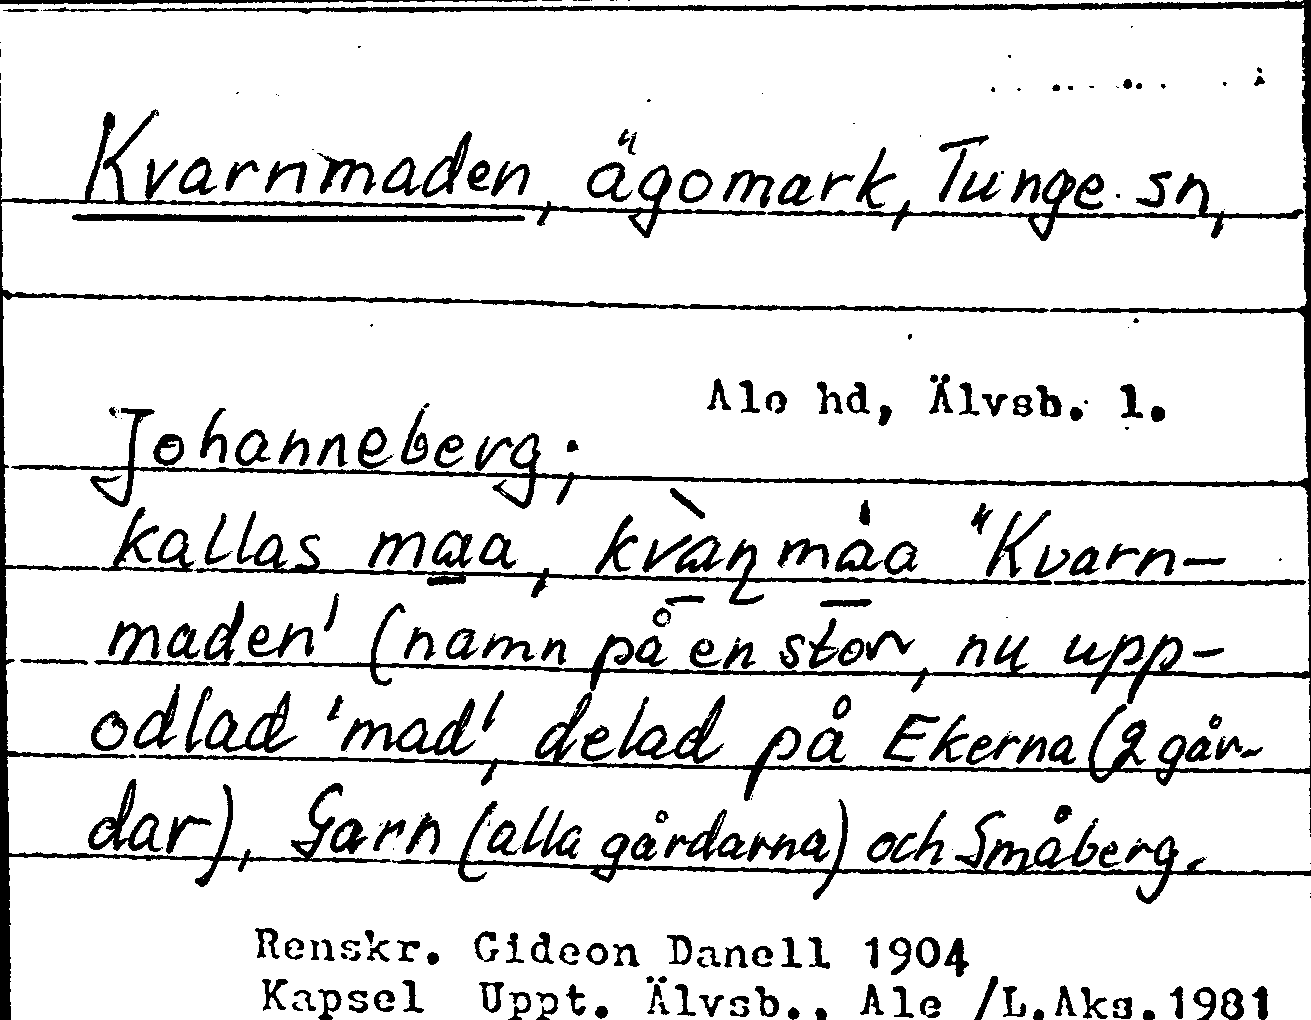 Kvarnmaden, ägomark, Tunge sn,
Ale hd, Älvsb. l.
Johanneberg;
kallas maa, kvàn̨ måa "Kvarn-
maden' (namn på en stor, nu upp-
odlad 'mad', delad på Ekerna (2 går-
dar), Garn (alla gårdarna) och Småberg.
Renskr. Gideon Danell 1904
Kapsel Uppt. Älvsb., Ale /L.Aks.1981